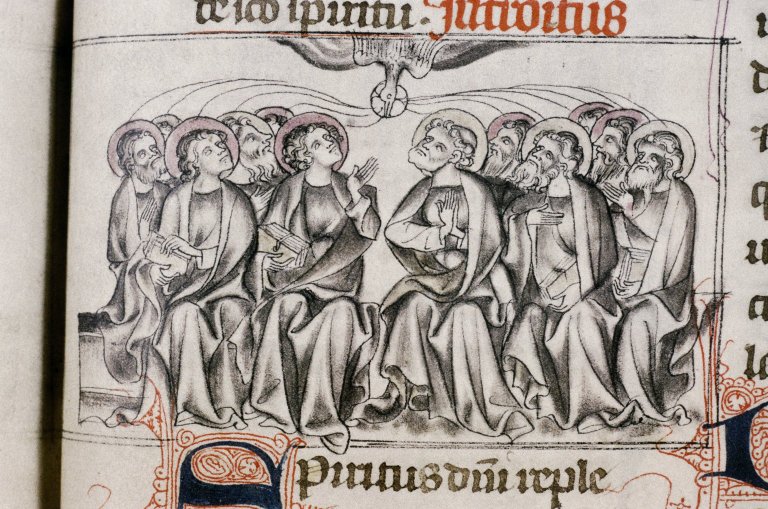 de sc̄o spiritu. Introitus
Spiritus dm̄i reple